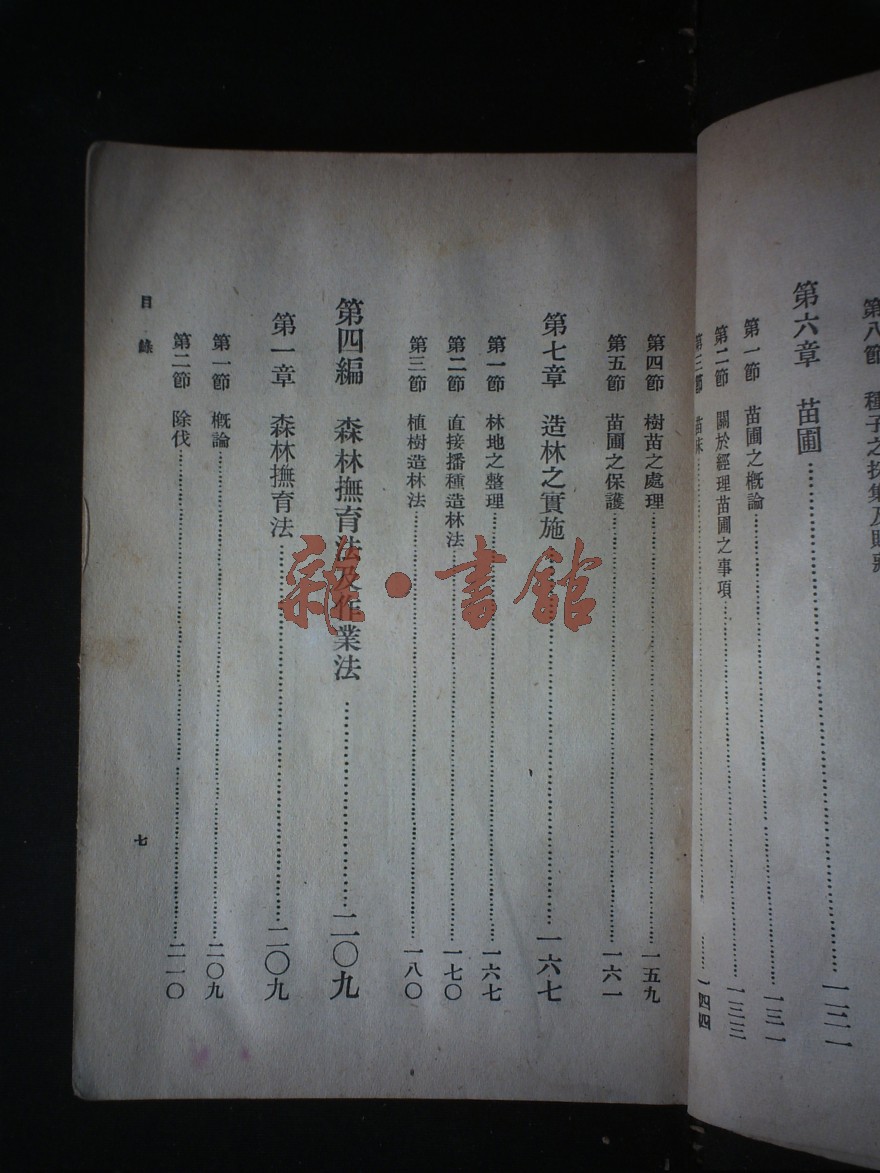 第六章 苗圃……一三一
第一節 苗圃之概論……一三一
第二節 關於經理苗圃之事項……一三三
第三節 苗床……一四四
第四節 樹苗之處理……一五九
第五節 苗圃之保護……一六一
第七章 造林之實施……一六七
第一節 林地之整理……一六七
第二節 直接播種造林法……一七〇
第三節 植樹造林法……一八〇
第四編 森林撫育法及作業法……二〇九
第一章 森林撫育法……二〇九
第一節 概論……二〇九
第二節 除伐……二一〇
目錄
七
雜·書館